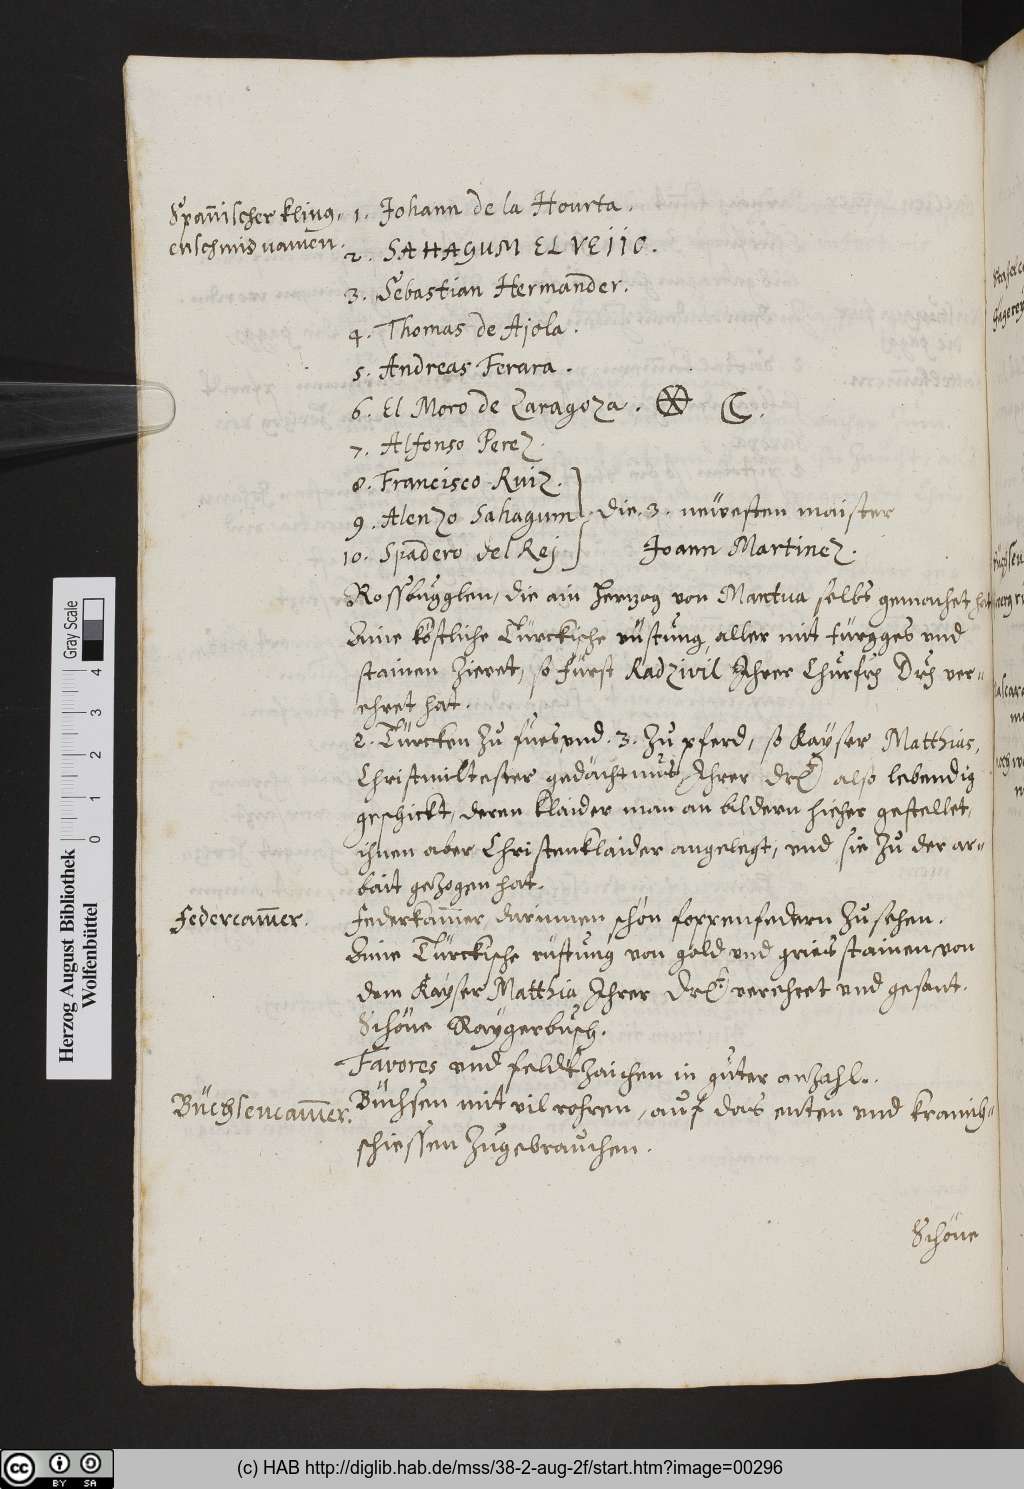 Spannischer kling,
enschmis namen.
1. Johann de la Hourta.
2. SAHAGUM EL VEIIO.
3. Sebastian Hermander.
4. Thomas de Ajola.
5. Andreas Ferara.
6. El Moro de Zaragoza.
7. Alfonso Perez.
8. Francisco Ruiz.
9. Alenzo Sahagum die. 3. neüesten maister
10. Spadero del Rej Joann Martinez.
Rossbugglen, die ain Hertzog von Mantua selbs gemachet hat
Aine köstliche Türckische rüstung, aller mit türgges und
stainen zieret, so fürst Radzivil Ihrer Churfrh Drh ver-
ehret hat.
2. Türcken zu fues und. 3. zu pferd, so Kayser Matthias,
Christmiltester gedächtnus, Ihrer Drt also lebendig
geschickt, deren klaider man an bildern hieher gestellet,
ihnen aber Christenklaider angelegt, und sie zu der ar-
bait gezogen hat.
Federcamer.
Federkamer darinnen schön feder zu sehen.
Aine Türckische rüstung von gold und gries stainen von
dem Kayser Matthia Ihrer Drt verehret und gesant.
Schöne Raygerbusch.
Favores und feldtzaichen in guter anzahl.
Büchsencamer.
Büchsen mit vil rohren, auf das enten und kranich-
schiessen zugebrauchen.
Schöne
Herzog August Bibliothek
Wolfenbüttel
Gray Scale
0 1 2 3 4
cc BY SA
(c) HAB http://diglib.hab.de/mss/38-2-aug-2f/start.htm?image=00296